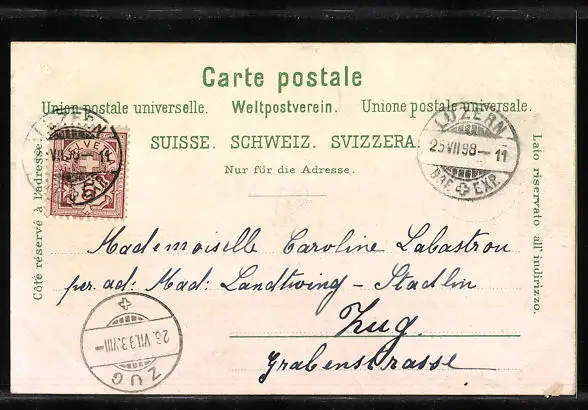 Carte postale
Union postale universelle. Weltpostverein. Unione postale universale.
SUISSE. SCHWEIZ. SVIZZERA.
Nur für die Adresse.
Côté réservé à l'adresse.
Lato riservato all indirizzo.
LUZERN
VII.98-11
HELVETIA
LUZERN
25.VII.98-11
BRF. EXP.
Mademoiselle Caroline Labastrou
per. ad: Mad: Landtwing-Stadlin
Zug.
Grabenstrasse
26.VII.93.VIII-
ZUG